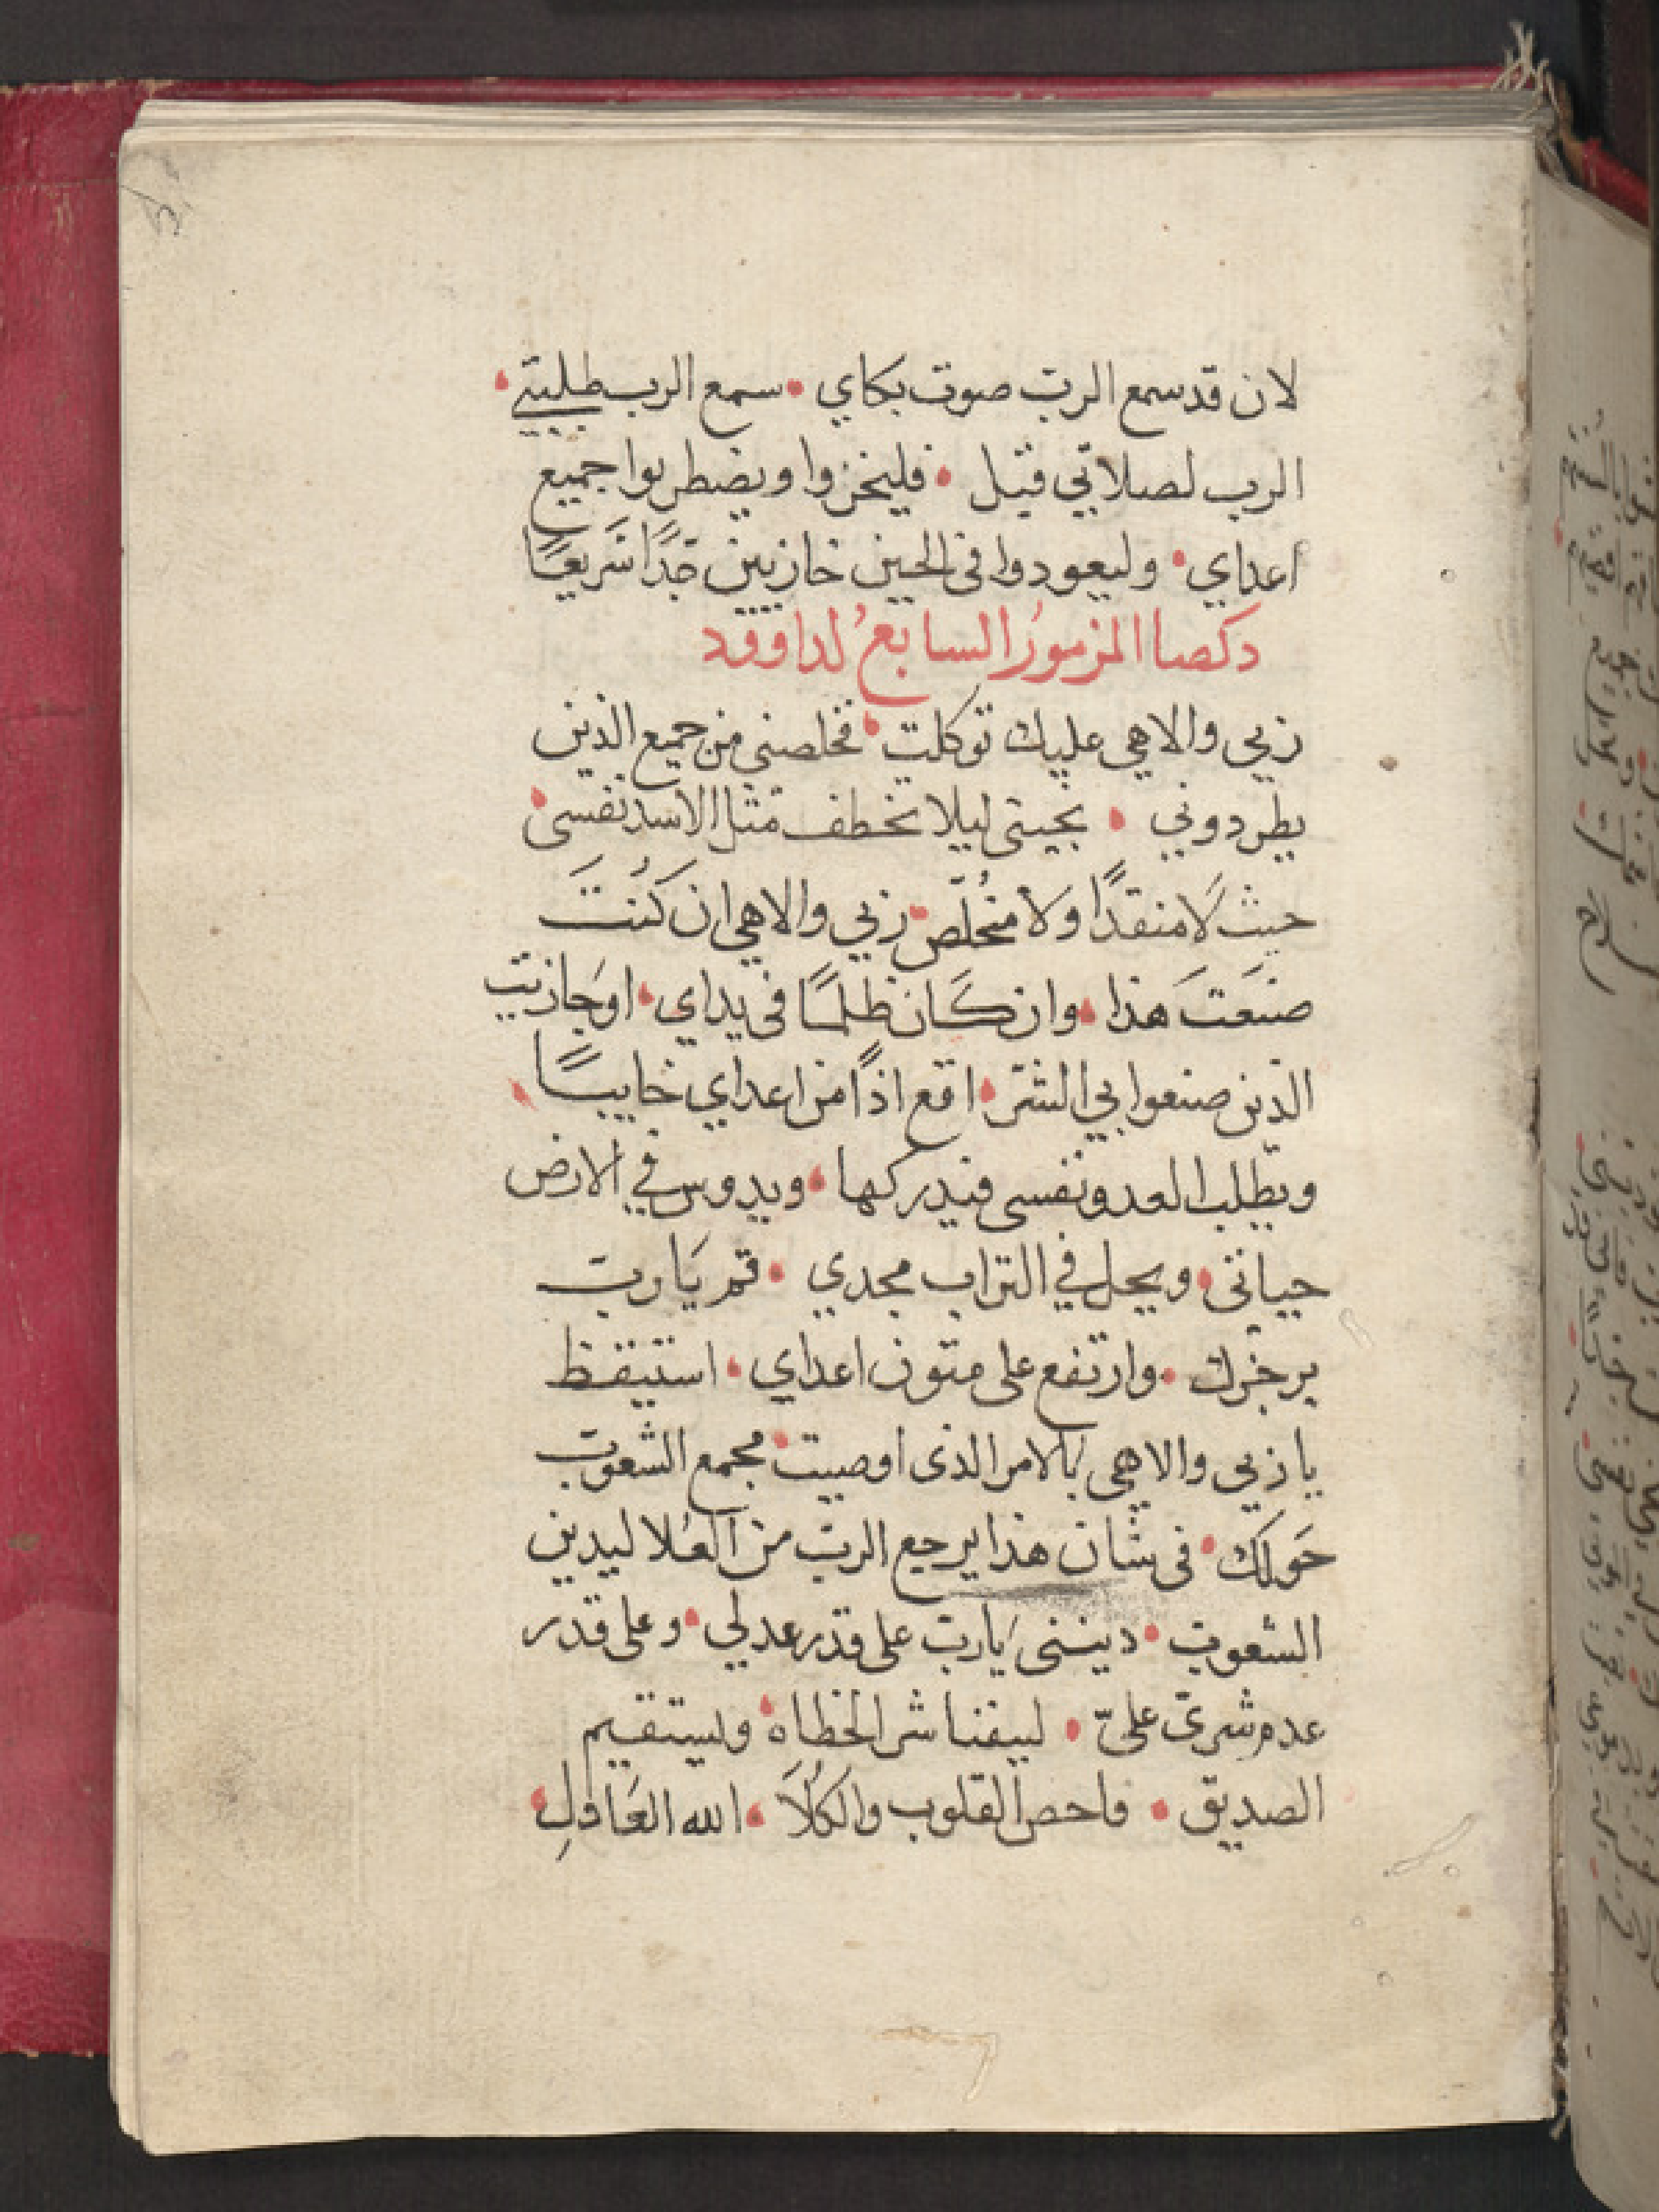 لان قد سمع الرب صوت بكاي • سمع الرب طلبتي •
الرب لصلاتي قبل • فليخزوا ويضطربوا جميع
اعداي • وليعودوا في الحين خازيين جدًا سَريعًا
دكصا المزمورُ السابعُ لداوود
ربي والاهي عليك توكلت • فخلصني من جميع الذين
يطردوني • نجيني ليلا تخطف مثل الاسد نفسي •
حيث لَا منقدًا وَلا مُخلّص • ربي والاهي ان كنتَ
صنَعتَ هذا • وان كَان ظلمًا في يداي • او جَازيت
الذين صنعوا بي الشر • اقع اذًا من اعداي خايبًا •
ويطلب العدو نفسي فيدركها • ويدوس في الارض
حياتي • ويحل في التراب مجدي • قم يَا رب
برجزك • وارتفع على متون اعداي • استيقظ
يا ربي والاهي بالامر الذى اوصيت • مجمع الشعوب
حَولك • فى شان هذا يرجع الرب من العُلا ليدين
الشعوب • دينني يَارب على قدر عدلي • وعلى قدر
عدم شرى علىّ • ليفنا شر الخطاه • ويستقيم
الصديق • فاحص القلوب والكُلَا • الله العَادلِ •